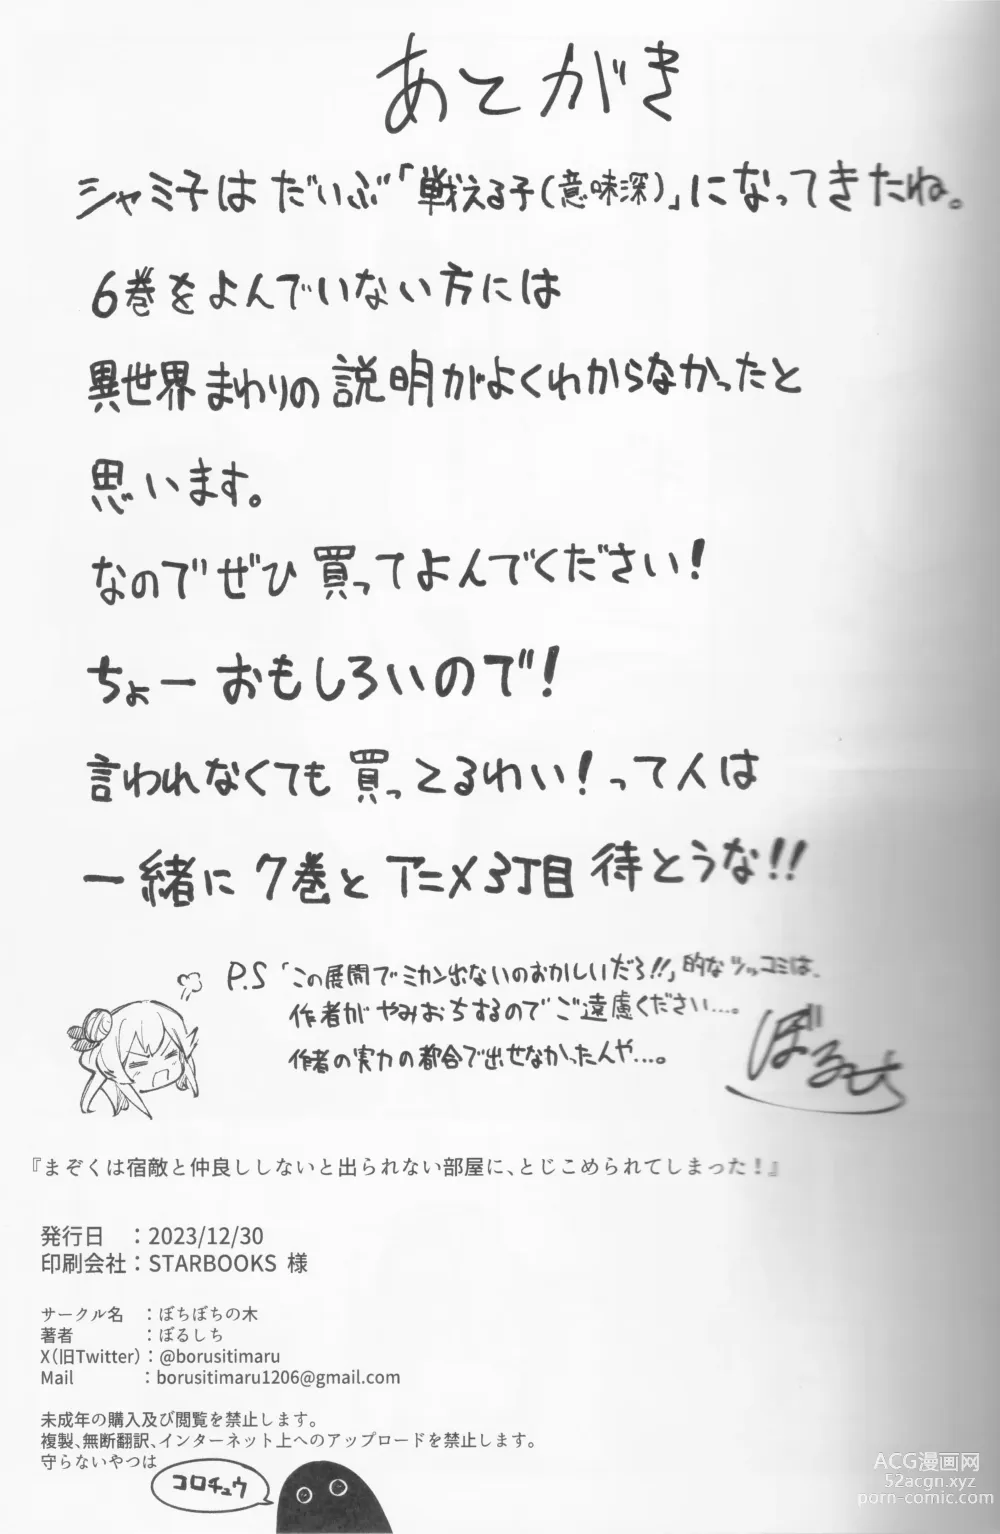 あとがき
シャミ子はだいぶ「戦える子(意味深)」になってきたね。
6巻をよんでいない方には
異世界まわりの説明がよくわからなかったと
思います。
なのでぜひ買ってよんでください!
ちょーおもしろいので!
言われなくても買ってるわい!って人は
一緒に7巻とアニメ3丁目待とうな!!
P.S「この展開でミカン出ないのおかしいだろ!!」的なツッコミは、
作者がやみおちするのでご遠慮ください…。
作者の実力の都合で出せなかったんや…。
ぼるしち
『まぞくは宿敵と仲良ししないと出られない部屋に、とじこめられてしまった!』
発行日 :2023/12/30
印刷会社:STARBOOKS 様
サークル名 :ぼちぼちの木
著者 :ぼるしち
X(旧Twitter):@borusitimaru
Mail :borusitimaru1206@gmail.com
未成年の購入及び閲覧を禁止します。
複製、無断翻訳、インターネット上へのアップロードを禁止します。
守らないやつは
コロチュウ
ACG漫画网
52acgn.xyz
porn-comic.com